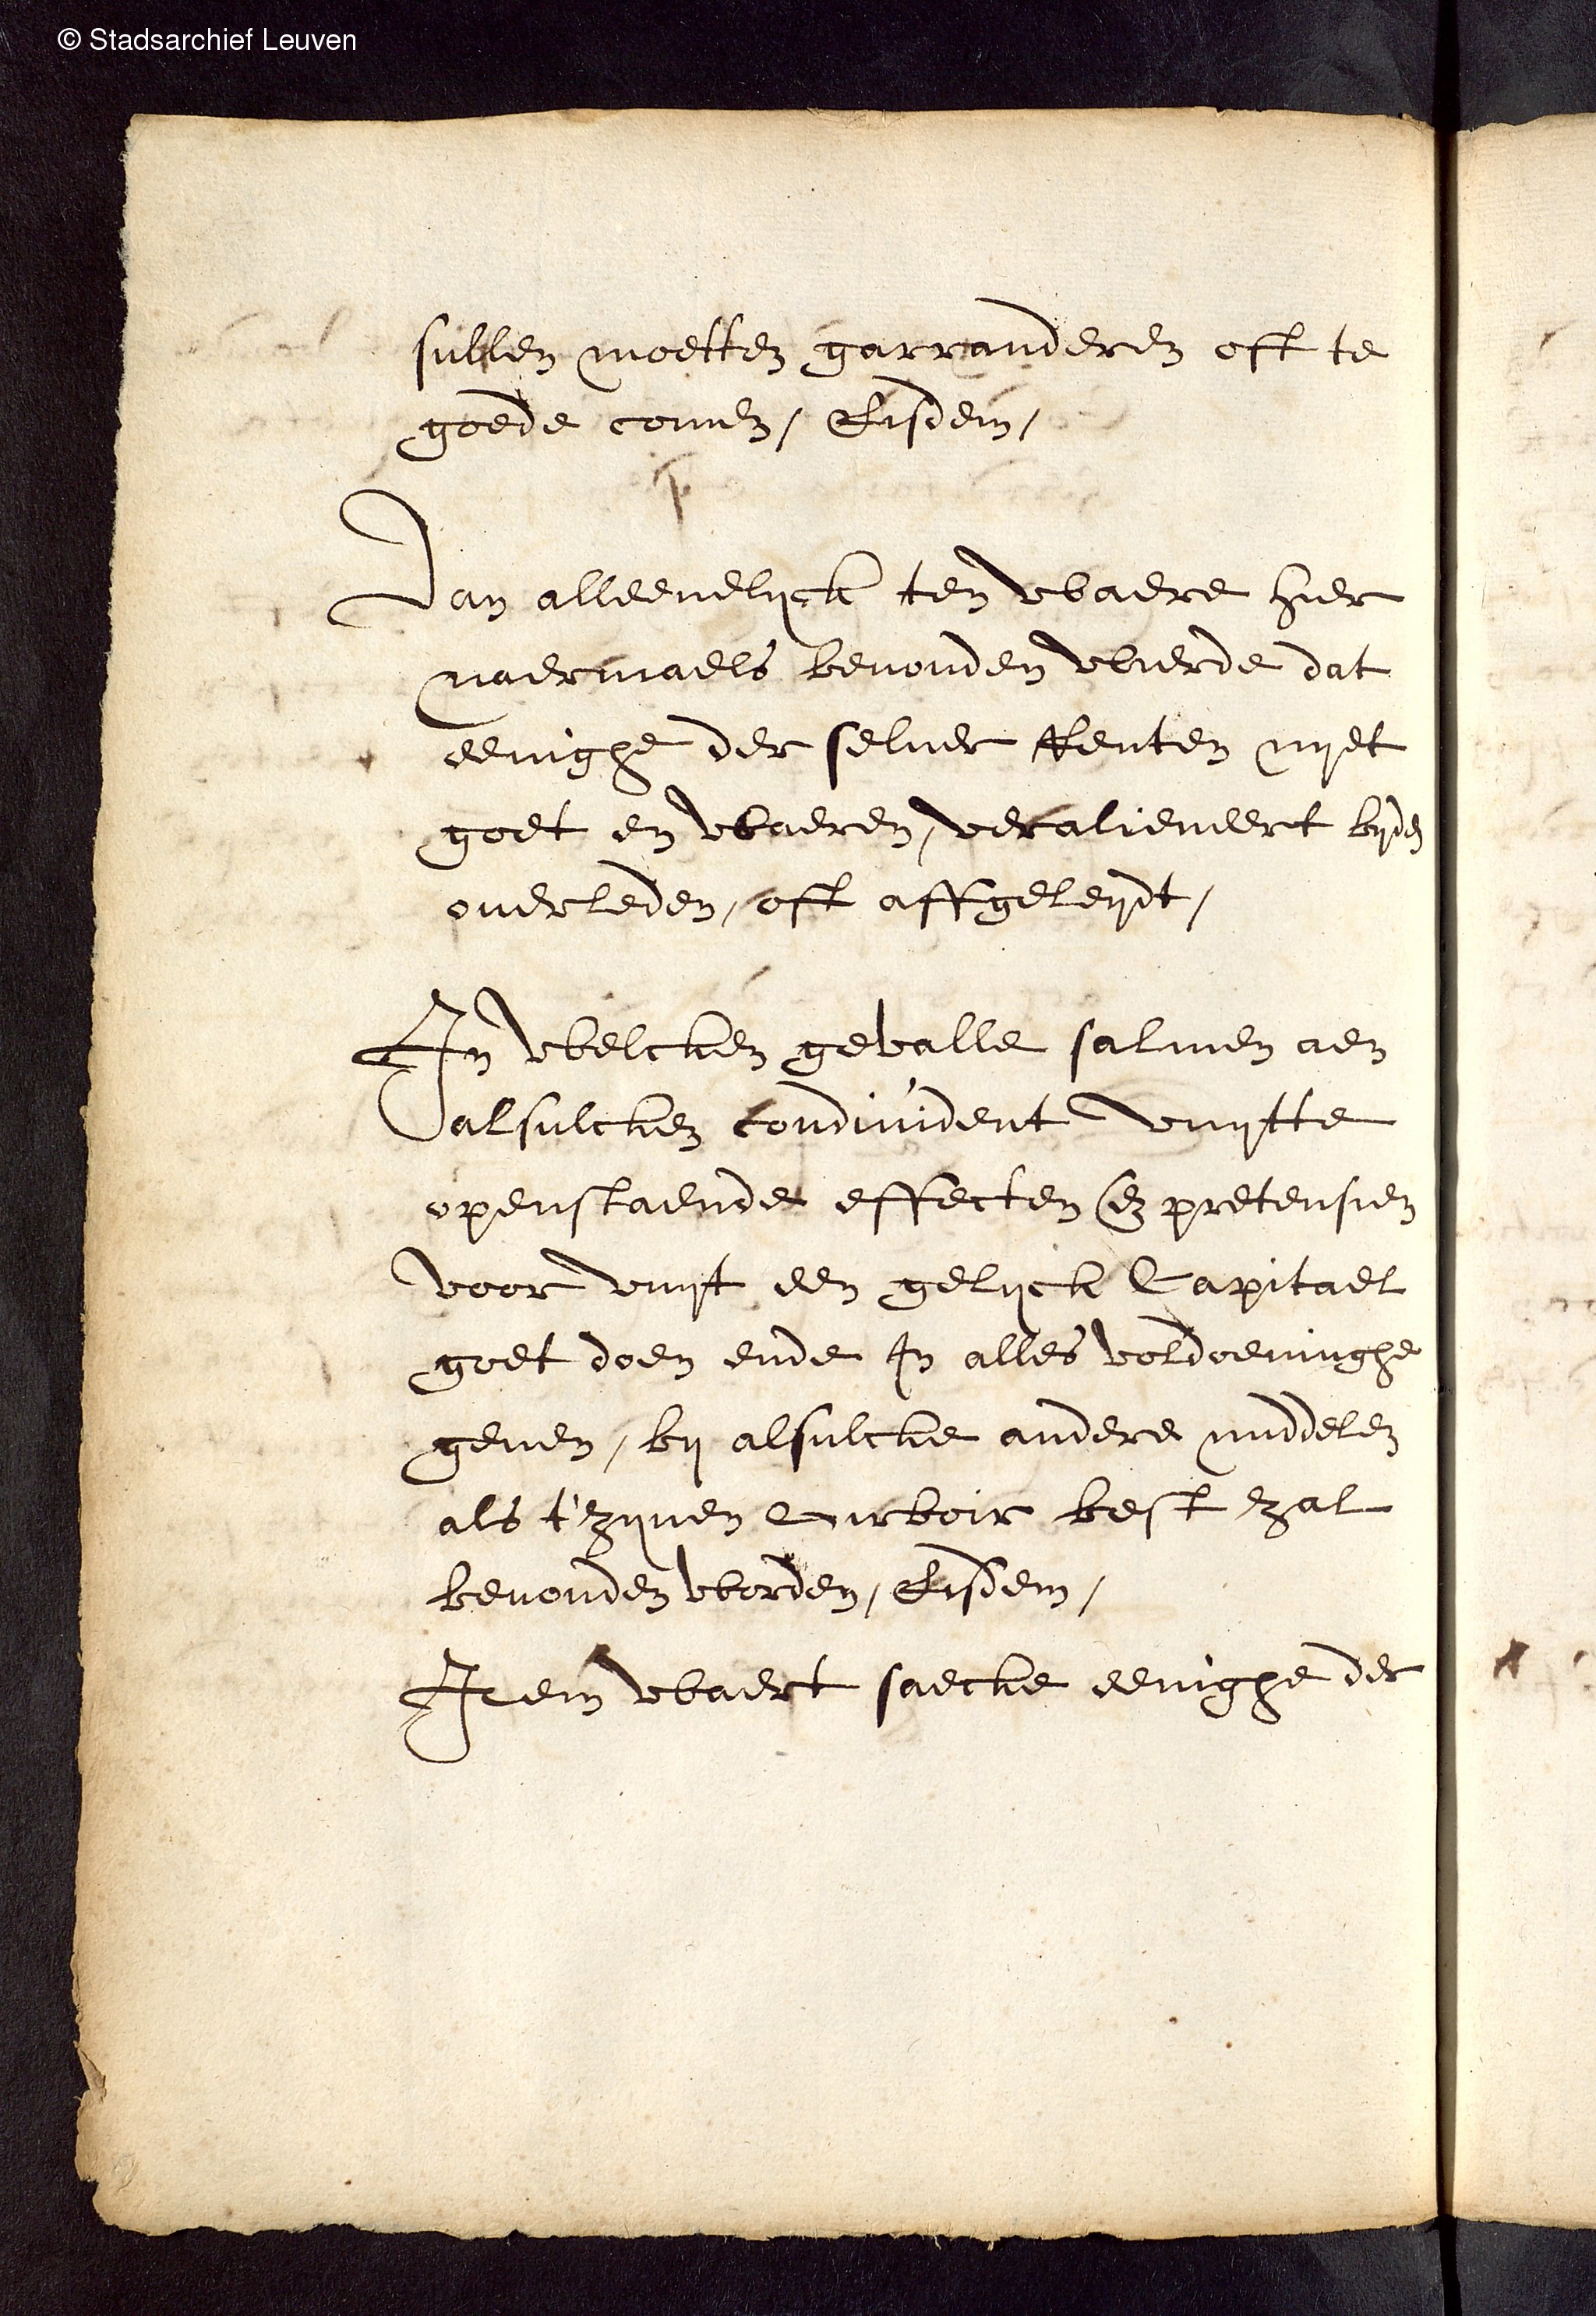 © Stadsarchief Leuven
sullen moetten garranderen oft te
goede comen, Eisdem,
Dan alleenelijck ten waere hier
naermaels bevonden wierde dat
eenighe der selver Renten nyet
goet en waeren, veralieneert byden
overleden, oft affgeleydt,
In welcken gevalle salmen aen
alsulcken condivident vuytte
openstaende effecten en pretensien
voor vuyt een gelyck Capitael
goet doen ende In alles voldoeninghe
geven, by alsulcke andere middelen
als t'zynen Oirboir best zal
bevonden worden, Eisdem,
Item waert saecke eenighe der